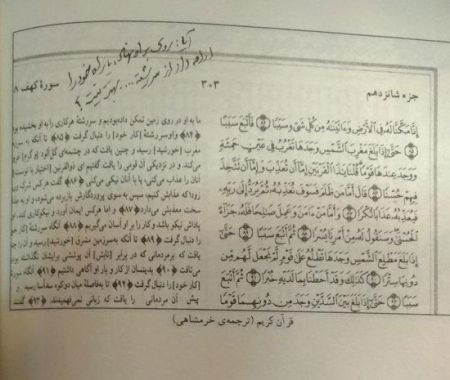 ادامه دار از سر رشته... بهتر نیست؟
جزء شانزدهم
۳۰۳
سورهٔ کهف ۸
إِنَّا مَكَّنَّا لَهُ فِي الْأَرْضِ وَءَاتَيْنَٰهُ مِن كُلِّ شَيْءٍ سَبَبًا ﴿٨٤﴾ فَأَتْبَعَ سَبَبًا
﴿٨٥﴾ حَتَّىٰ إِذَا بَلَغَ مَغْرِبَ الشَّمْسِ وَجَدَهَا تَغْرُبُ فِي عَيْنٍ حَمِئَةٍ
وَوَجَدَ عِندَهَا قَوْمًا قُلْنَا يَٰذَا الْقَرْنَيْنِ إِمَّا أَن تُعَذِّبَ وَإِمَّا أَن تَتَّخِذَ
فِيهِمْ حُسْنًا ﴿٨٦﴾ قَالَ أَمَّا مَن ظَلَمَ فَسَوْفَ نُعَذِّبُهُ ثُمَّ يُرَدُّ إِلَىٰ رَبِّهِ
فَيُعَذِّبُهُ عَذَابًا نُّكْرًا ﴿٨٧﴾ وَأَمَّا مَنْ ءَامَنَ وَعَمِلَ صَٰلِحًا فَلَهُ جَزَاءً
الْحُسْنَىٰ وَسَنَقُولُ لَهُ مِنْ أَمْرِنَا يُسْرًا ﴿٨٨﴾ ثُمَّ أَتْبَعَ سَبَبًا ﴿٨٩﴾ حَتَّىٰ
إِذَا بَلَغَ مَطْلِعَ الشَّمْسِ وَجَدَهَا تَطْلُعُ عَلَىٰ قَوْمٍ لَّمْ نَجْعَل لَّهُم مِّن
دُونِهَا سِتْرًا ﴿٩٠﴾ كَذَٰلِكَ وَقَدْ أَحَطْنَا بِمَا لَدَيْهِ خُبْرًا ﴿٩١﴾ ثُمَّ أَتْبَعَ
سَبَبًا ﴿٩٢﴾ حَتَّىٰ إِذَا بَلَغَ بَيْنَ السَّدَّيْنِ وَجَدَ مِن دُونِهِمَا قَوْمًا
ما به او در روی زمین تمکن داده‌بودیم و سررشتهٔ هرکاری را به او بخشیده بو
﴿۸۴﴾ و او سررشتهٔ [کار خود] را دنبال گرفت ﴿۸۵﴾ تا آنکه به سرزم
مغرب [خورشید] رسید و چنین یافت که در چشمه‌ای گل‌آلود [و گرم] غرو
می‌کند و در نزدیکی آن قومی را یافت گفتیم ای ذوالقرنین [اختیار با توست]
آنان را عذاب می‌کنی، یا با آنان نیکی می‌کنی ﴿۸۶﴾ گفت هرکس شرک ور
زودا که عذابش کنیم، سپس به سوی پروردگارش بازبرده می‌شود، و او به عذ
سخت معذبش می‌دارد ﴿۸۷﴾ و اما هرکس ایمان آورد و نیکوکاری کند، او
پاداش نیکو باشد و کار را بر او آسان می‌گیریم ﴿۸۸﴾ آنگاه سررشتهٔ [کار خو
را دنبال گرفت ﴿۸۹﴾ تا آنکه به‌سرزمین مشرق [خورشید] رسید و آن را چ
یافت که بر مردمانی که در برابر [تابش] آن پوششی برایشان نگذاشته بود
می‌تافت ﴿۹۰﴾ بدینسان از کار و بار او آگاهی داشتیم ﴿۹۱﴾ آنگاه سررش
[کار خود] را دنبال گرفت ﴿۹۲﴾ تا به‌فاصلهٔ میان دوکوه سدآسا رسید و
پیش آن مردمانی را یافت که زبانی نمی‌فهمیدند ﴿۹۳﴾ گفت
قرآن کریم (ترجمه‌ی خرمشاهی)